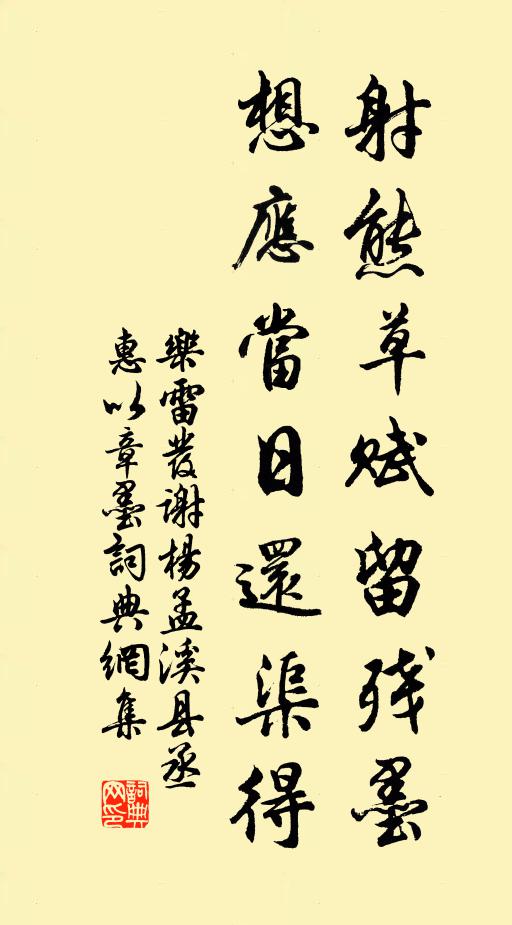 射熊草赋留残墨
想應當日還渠得
樂雷發谢楊孟溪县丞
惠以章墨詞典網集
詞典网印